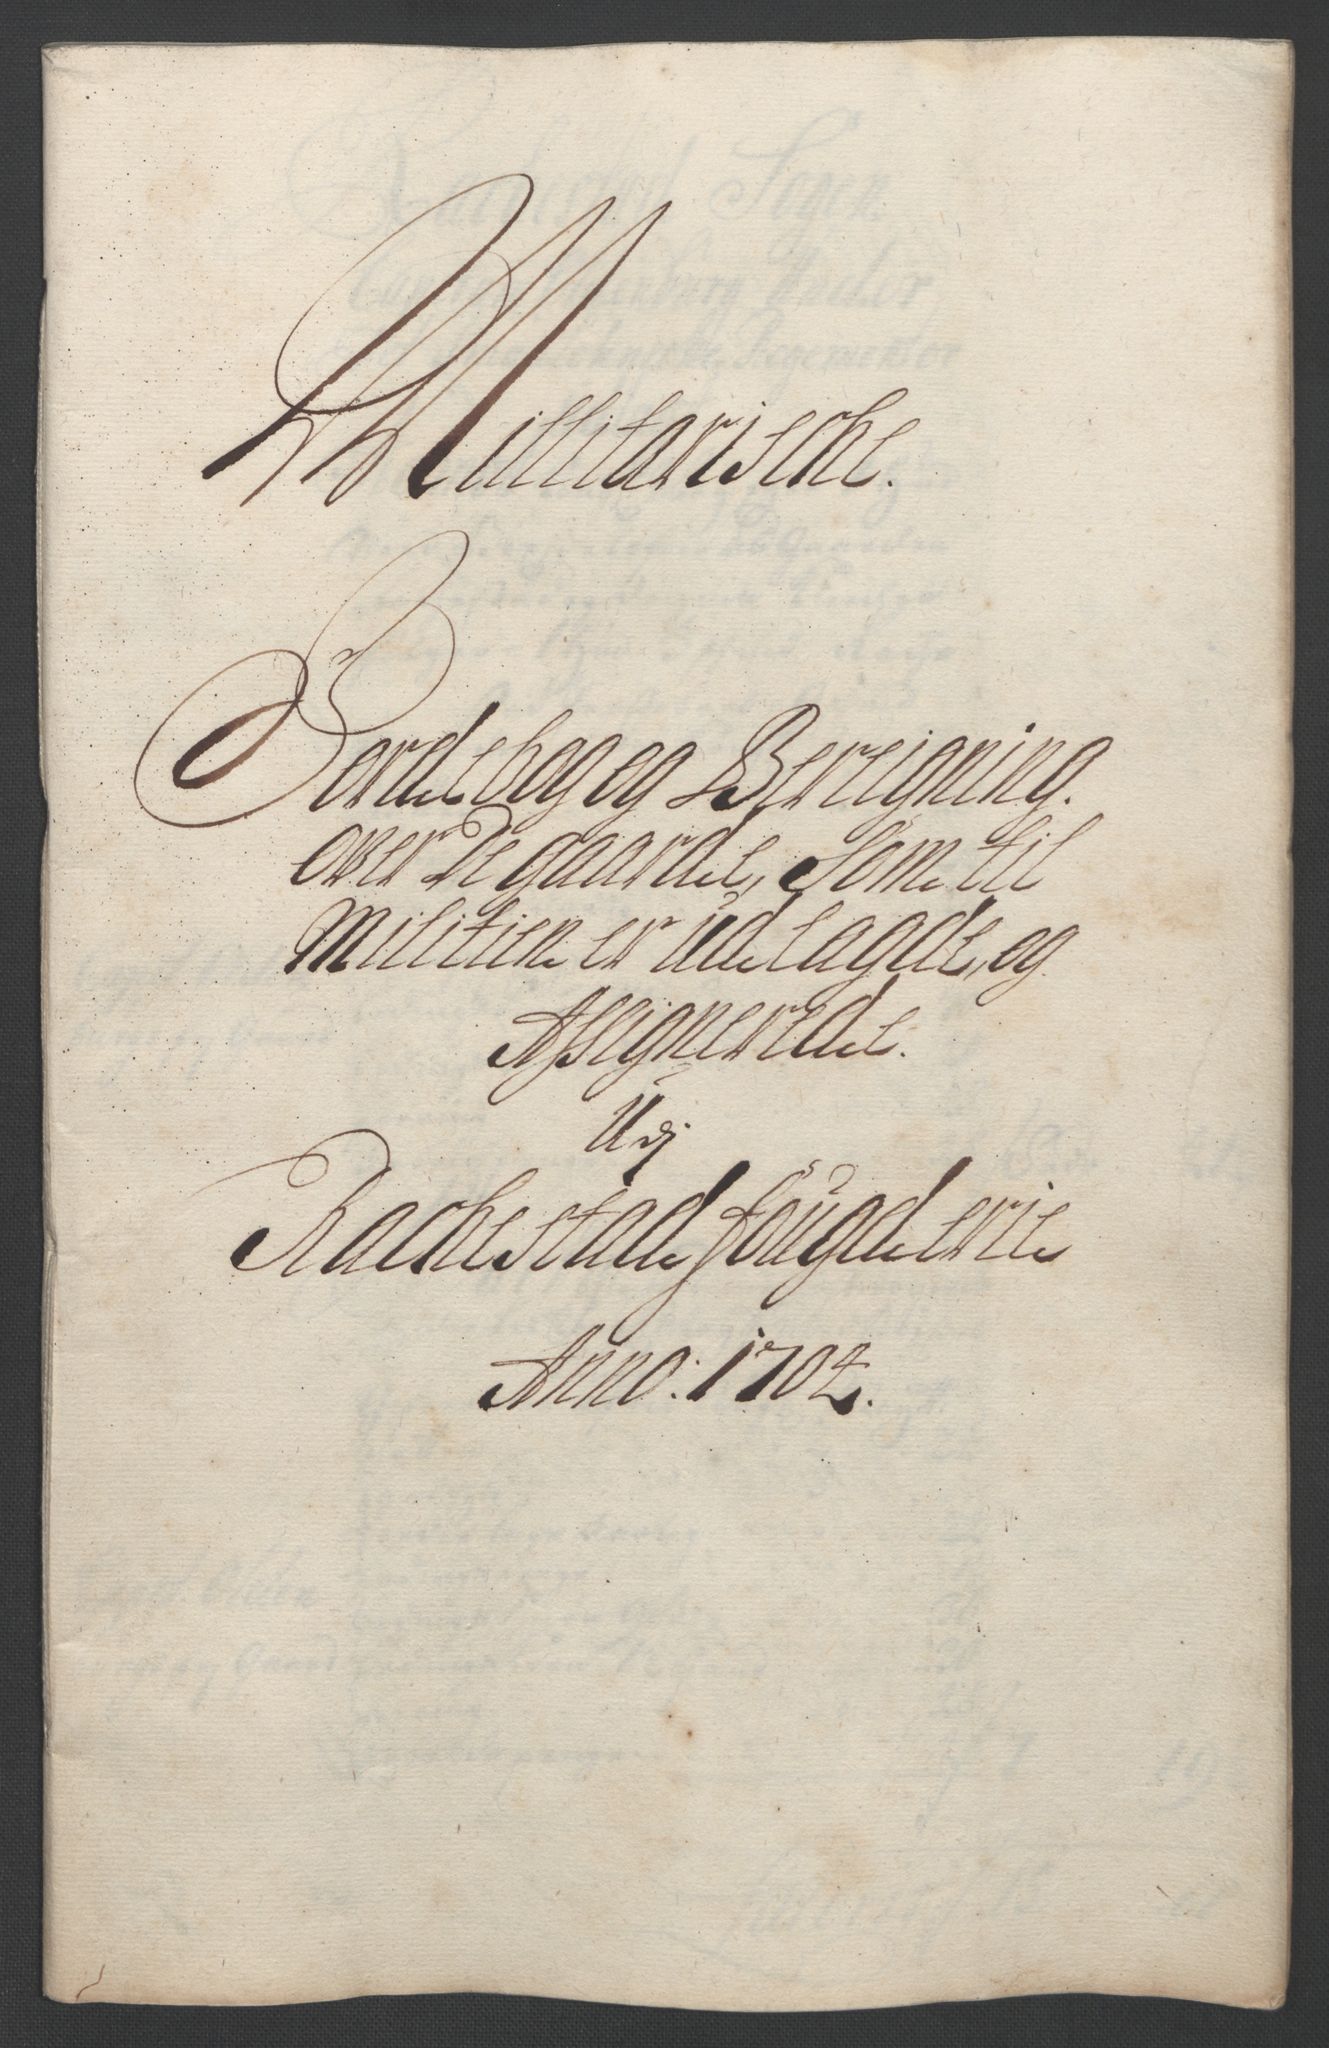 Millitarische.
Jordebog og Bereigning.
over De gaarde, Som til
Militien er udlagde, og
Assignerede.
Udj
Rachestad fougderie
Anno: 1702.